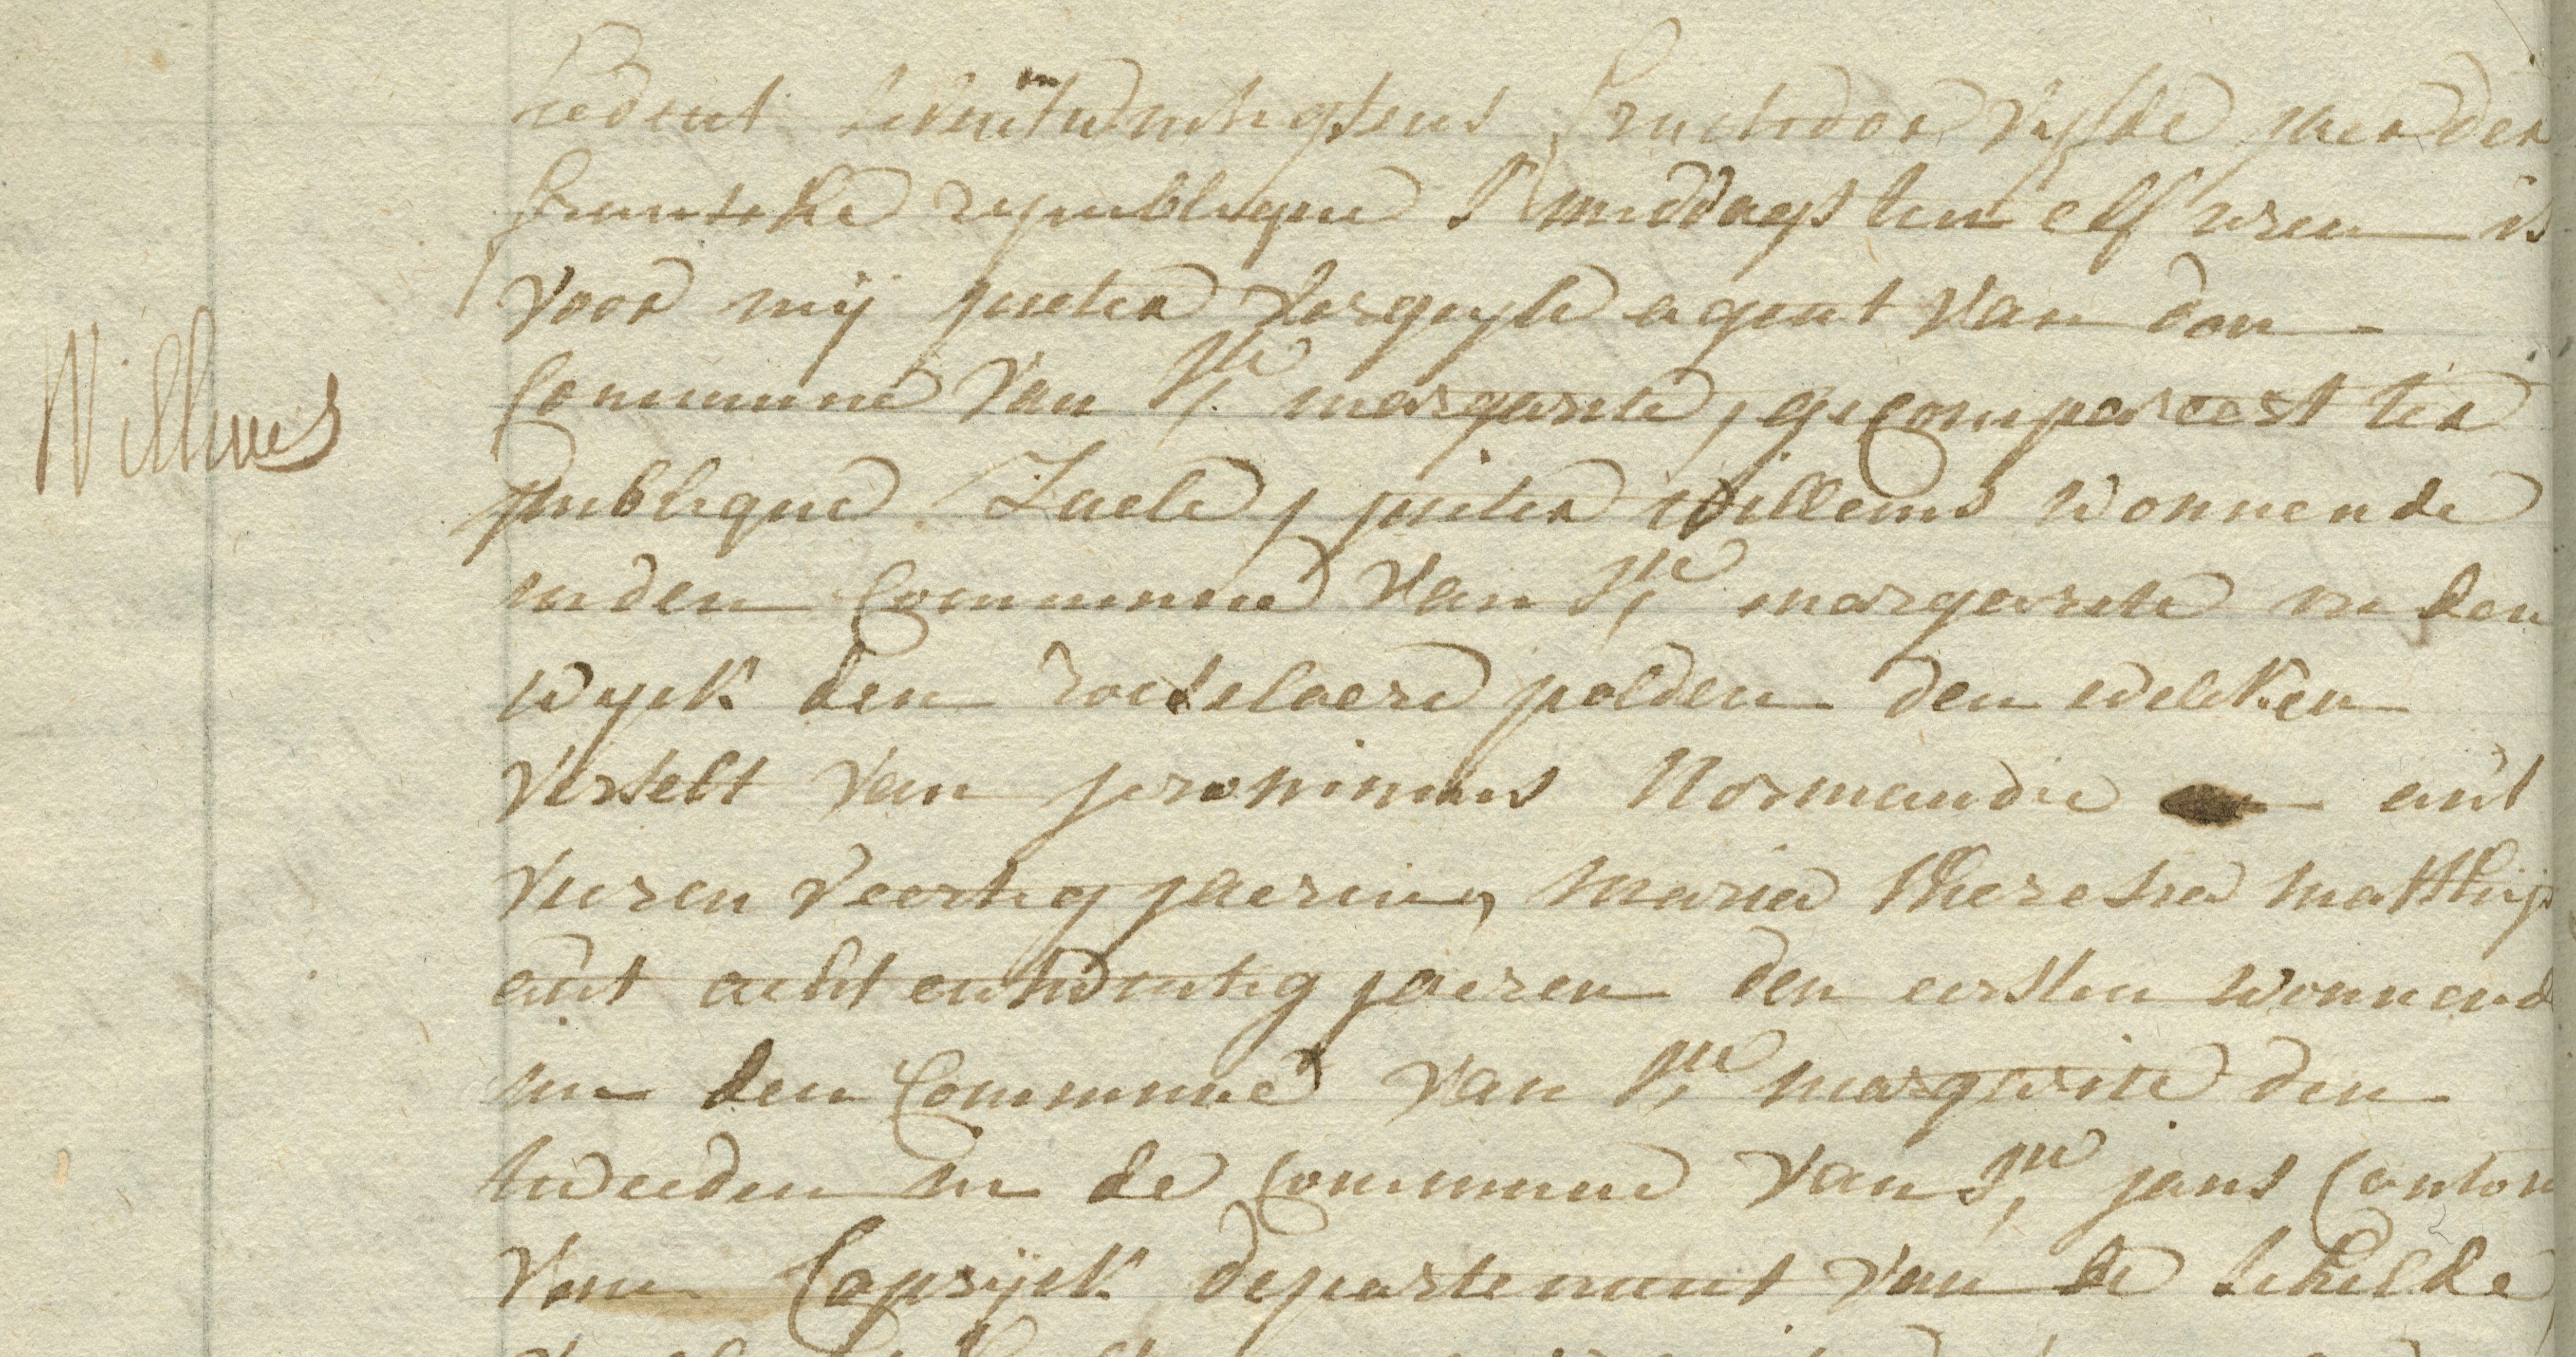 hedent seventwintigstens fructidor vyfde jaer der
fransche republique s'middags ten elf uren is
voor mij pieter Verguyle agent van don
Willems
Commune van S.te margarite, gecompareert ter
publique Zaele, pieter willems wonnende
inden Commune van S.te margarite in den
wyck den roeselaere polder den welcken
verselt van jeronimus Normandie out
vieren veertig jaeren, maria theresia matthijs
out achtentwintig jaeren den eersten wonnende
in den Commune van S.te margarite den
tweeden in de Commune van S.te jans Conton
van Caprijck departement van de schelde